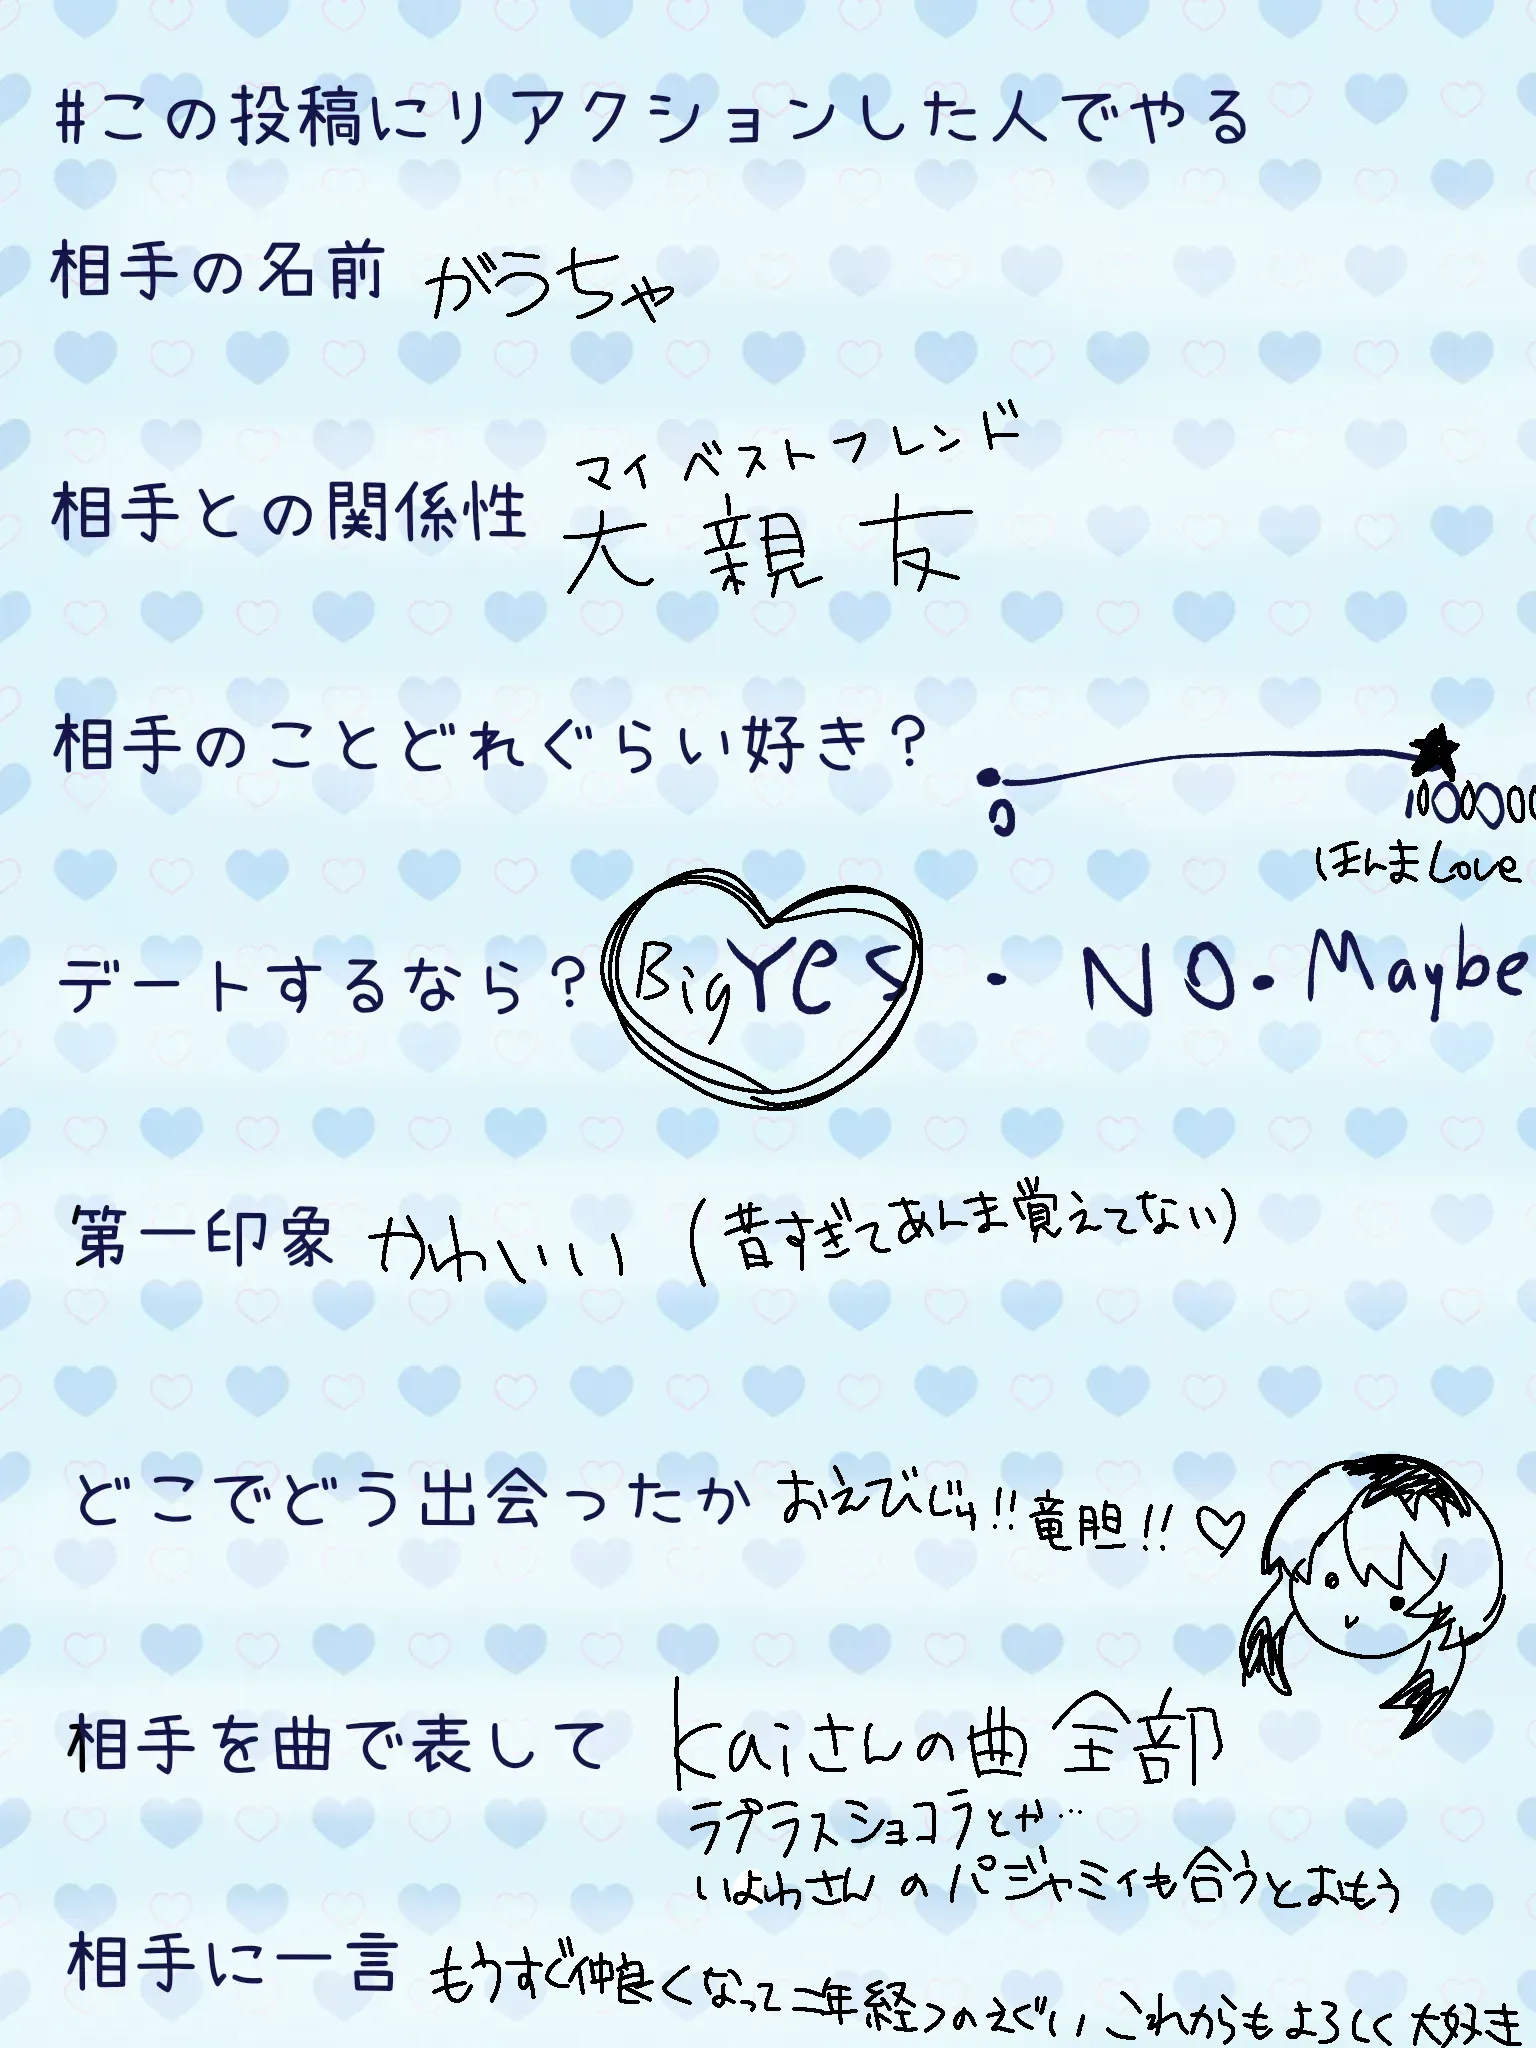 #この投稿にリアクションした人でやる
相手の名前 がうちゃ
マイベストフレンド
相手との関係性 大親友
相手のことどれぐらい好き?
0 1000000
ほんまLove
デートするなら? Big Yes ・ NO ・ Maybe
第一印象 かわいい (昔すぎてあんま覚えてない)
どこでどう出会ったか おえびじゅ!!竜胆!!♡
相手を曲で表して kaiさんの曲全部
ラプラスショコラとか…
いよわさんのパジャミィも合うとおもう
相手に一言 もうすぐ仲良くなって二年経つのえぐい これからもよろしく大好き